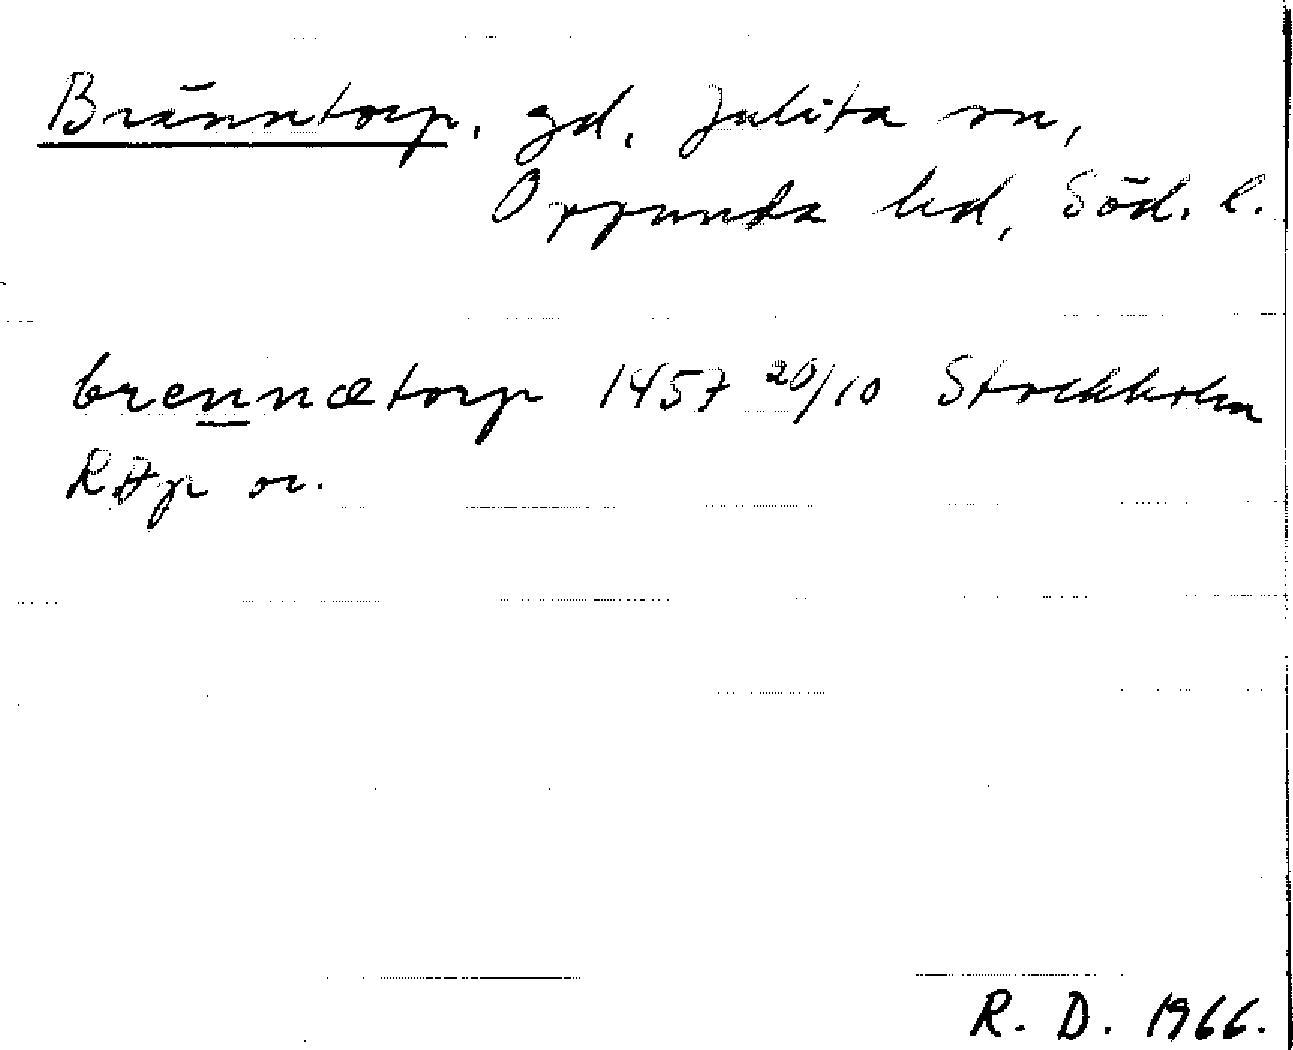 Bränntorp, gd, Julita sn,
Oppunda hd, Söd. l.
brennætorp 1457 20/10 Stockholm
RAp or.
R. D. 1966.